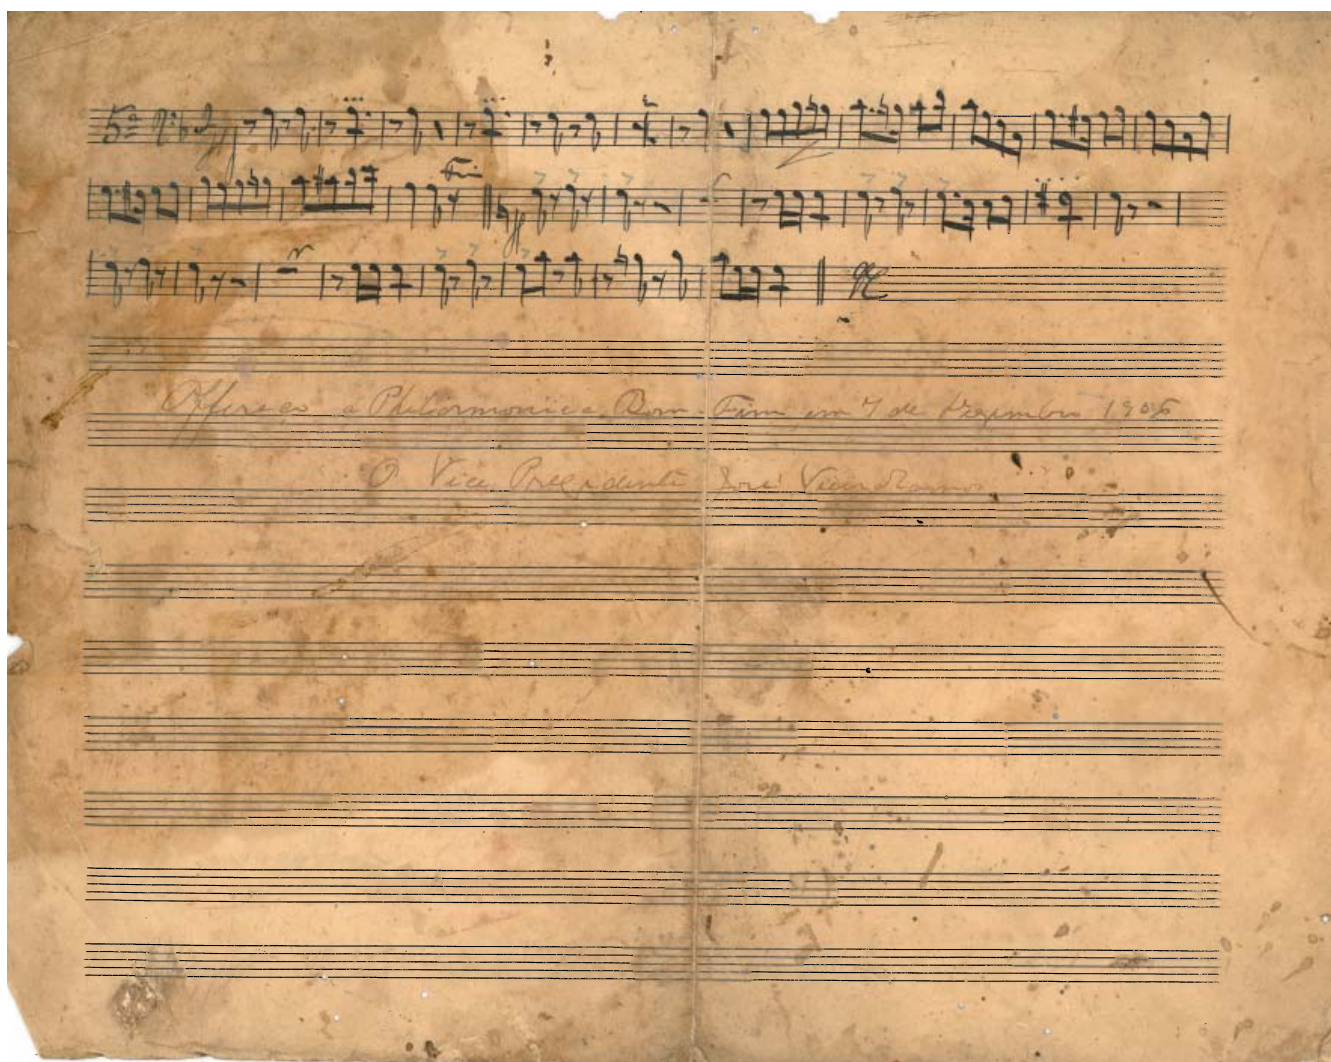 5ª
Fim
DC
Offereço a Philarmonica Bom Fim em 7 de Dezembro 1906
O Vice Presidente José Vieira Ramos